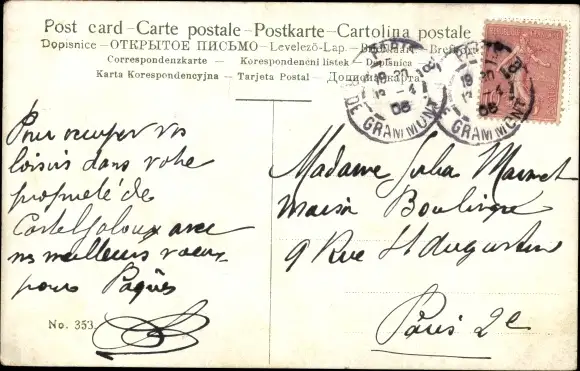 Post card - Carte postale - Postkarte - Cartolina postale
Dopisnice - ОТКРЫТОЕ ПИСЬМО - Levelező-Lap.
Correspondenzkarte - Korespondenční lístek - Dopisnica
Karta Korespondencyjna - Tarjeta Postal - Дописна карта
PARIS 18
19 20
-4
06
DE GRAMMONT
PARIS 18
19 20
-4
06
GRAMMONT
Pour occuper vos
loisirs dans votre
propriété de
Casteljaloux avec
mes meilleurs voeux
pour Pâques
No. 353.
Madame Julia
maison Boulingre
9 Rue St Augustin
Paris 2e